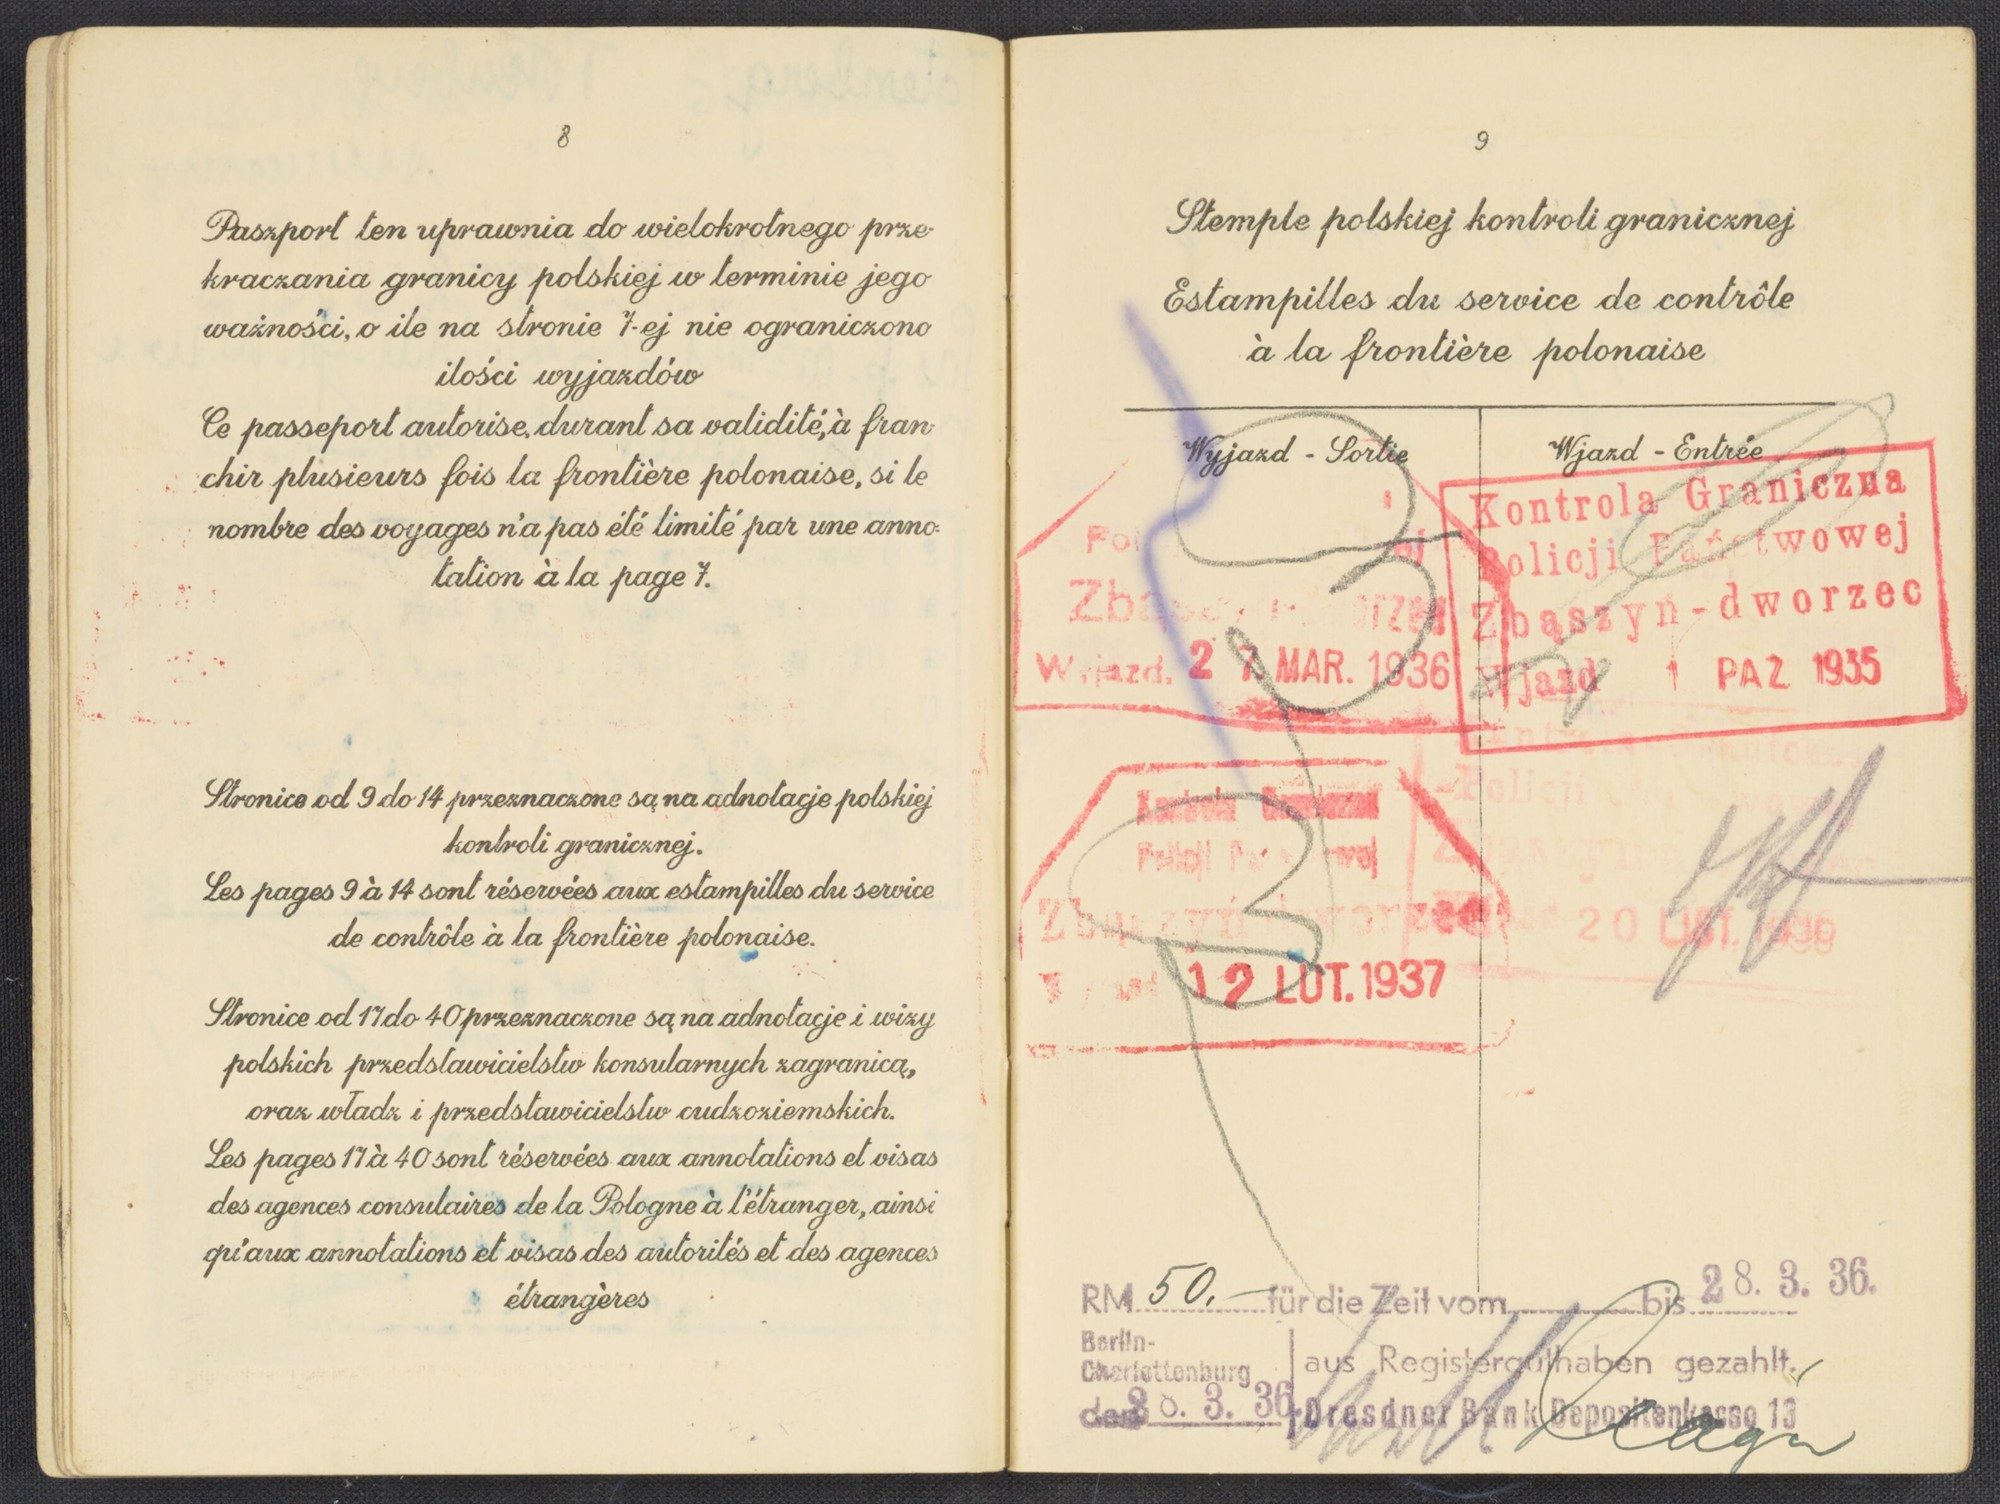 8
Paszport ten uprawnia do wielokrotnego prze-
kraczania granicy polskiej w terminie jego
ważności, o ile na stronie 7-ej nie ograniczono
ilości wyjazdów
Ce passeport autorise, durant sa validité, à fran-
chir plusieurs fois la frontière polonaise, si le
nombre des voyages n'a pas été limité par une anno-
tation à la page 7.
Stronice od 9 do 14 przeznaczone są na adnotacje polskiej
kontroli granicznej.
Les pages 9 à 14 sont réservées aux estampilles du service
de contrôle à la frontière polonaise.
Stronice od 17 do 40 przeznaczone są na adnotacje i wizy
polskich przedstawicielstw konsularnych zagranicą,
oraz władz i przedstawicielstw cudzoziemskich.
Les pages 17 à 40 sont réservées aux annotations et visas
des agences consulaires de la Pologne à l'étranger, ainsi
qu'aux annotations et visas des autorités et des agences
étrangères
9
Stemple polskiej kontroli granicznej
Estampilles du service de contrôle
à la frontière polonaise
Wyjazd - Sortie
Wjazd - Entrée
Wyjazd. 27 MAR. 1936
Kontrola Graniczna
Policji Państwowej
Zbąszyń-dworzec
Wjazd 1 PAZ 1935
Zbąszyń dworzec
12 LUT. 1937
Policji
20 LIST.
RM 50.- für die Zeit vom bis 28. 3. 36.
Berlin-
Charlottenburg
aus Registerguthaben gezahlt.
den 28. 3. 36. Dresdner Bank Depositenkasse 13